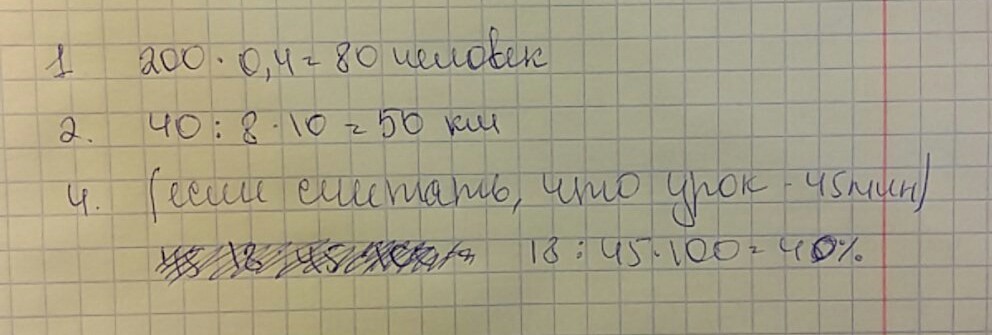 1 200 · 0,4 = 80 человек
2. 40 : 8 · 10 = 50 км
4. (если считать, что урок - 45 мин)
18 : 45 · 100 = 40%